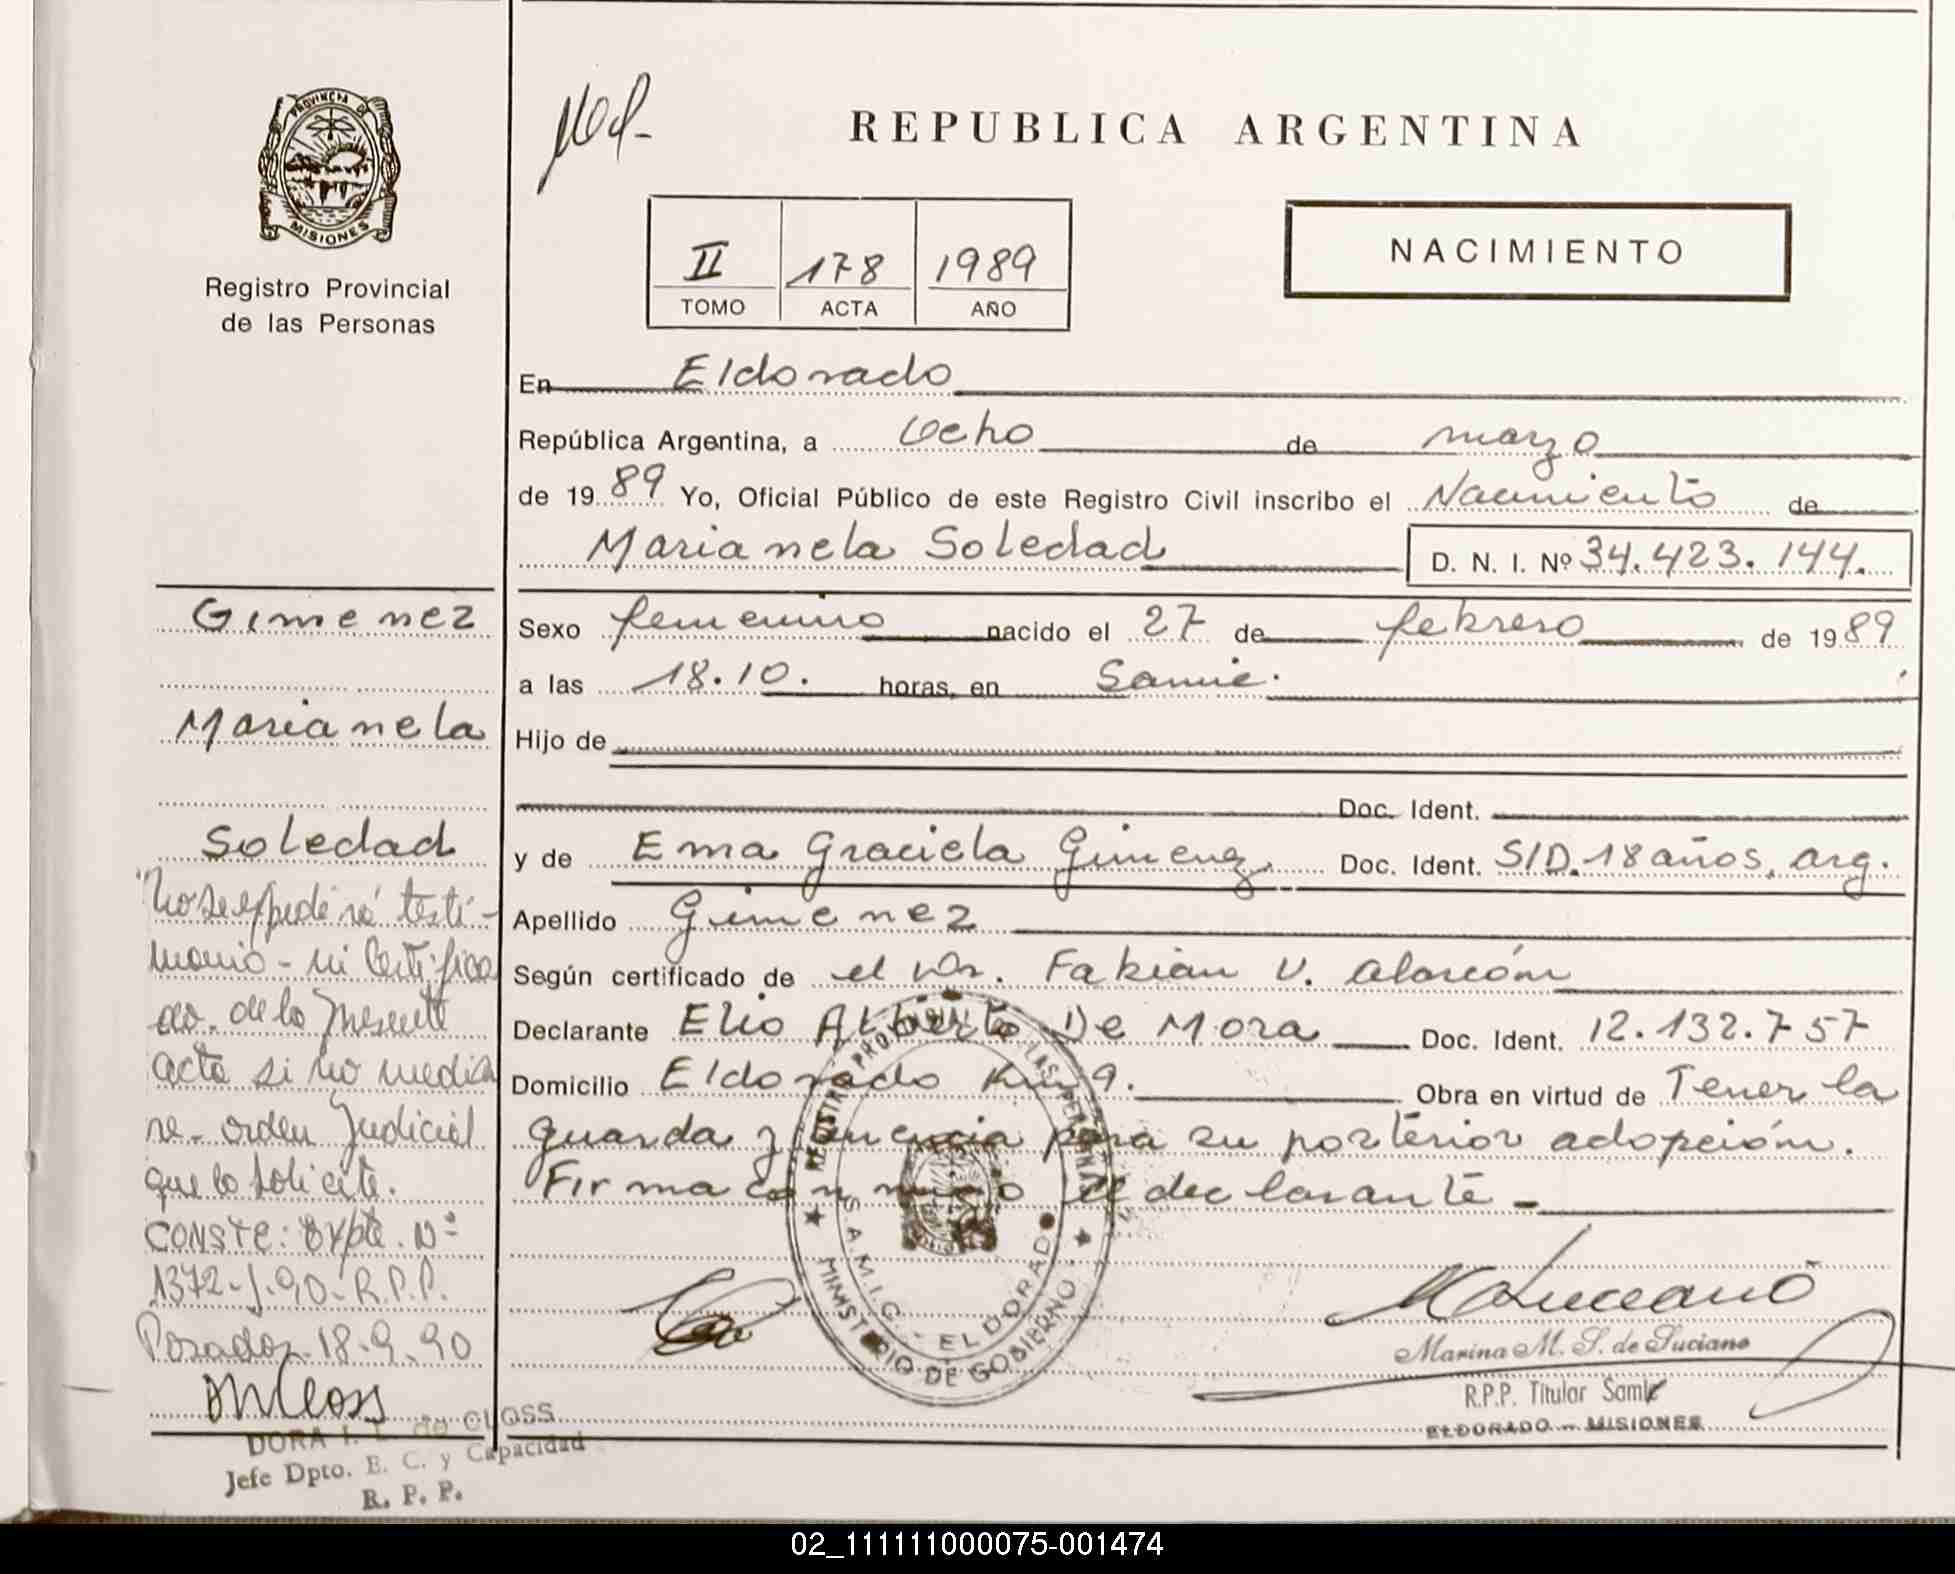 PROVINCIA DE
MISIONES
Registro Provincial
de las Personas
REPUBLICA ARGENTINA
NACIMIENTO
II 178 1989
TOMO ACTA AÑO
En Eldorado
República Argentina, a ocho de marzo
de 1989 Yo, Oficial Público de este Registro Civil inscribo el Nacimiento de
Marianela Soledad D. N. I. Nº 34.423.144.
Sexo femenino nacido el 27 de febrero de 1989
a las 18.10. horas, en Samic.
Hijo de
Doc. Ident.
y de Ema Graciela Gimenez Doc. Ident. S/D. 18 años, arg.
Apellido Gimenez
Según certificado de el Dr. Fabian V. Alarcón
Declarante Elio Alberto De Mora Doc. Ident. 12.132.757
Domicilio Eldorado Km 9. Obra en virtud de Tener la
guarda y tenencia para su posterior adopción.
Firma conmigo el declarante
Gimenez
Marianela
Soledad
"No se expedirá testi-
monio - ni certifica
do. de la presente
acta si no media
re. orden Judicial
que lo solicite.
CONSTE: Expte. Nº
1372-J-90-R.P.P.
Posadas 18-9-90
DORA I. L. de CLOSS
Jefe Dpto. E. C. y Capacidad
R. P. P.
REGISTRO PROVINCIAL DE LAS PERSONAS
S.A.M.I.C. - ELDORADO
MINISTERIO DE GOBIERNO
Marina M. S. de Luciano
R.P.P. Titular Samic
ELDORADO - MISIONES
02_111111000075-001474